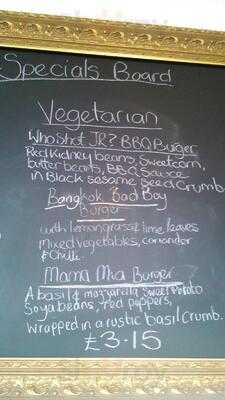 Specials Board
Vegetarian
Who Shot JR? BBQ Burger
Red Kidney beans, Sweetcorn,
butter beans, BBQ Sauce
in Black sesame seed Crumb
Bangkok Bad Boy
Burger
with lemongrass & lime leaves
mixed vegetables, coriander
& chilli.
Mama Mia Burger
A basil & mozzarella sweet Potato
Soya beans, red peppers,
wrapped in a rustic basil crumb.
£3.15